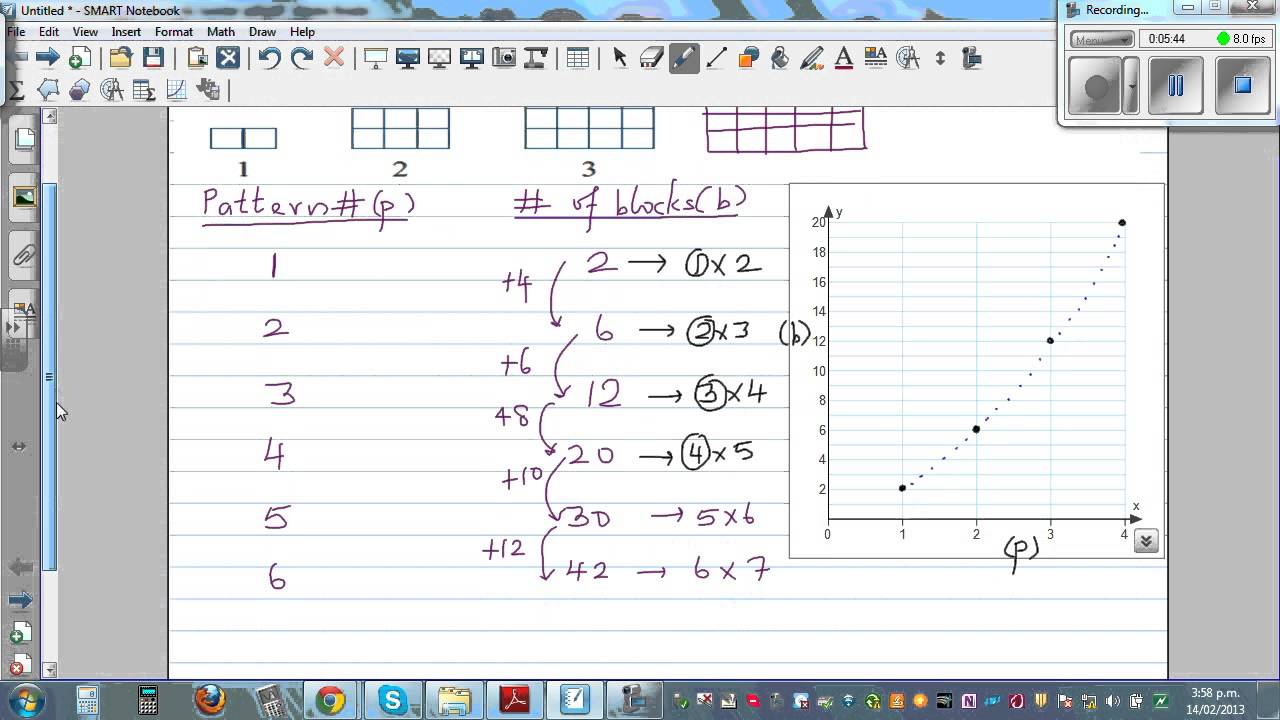 Untitled * - SMART Notebook
Recording...
File Edit View Insert Format Math Draw Help
Menu 0:05:44 8.0 fps
1 2 3
Pattern#(p) # of blocks(b)
1 2 → ①×2
+4
2 6 → ②×3
+6
3 12 → ③×4
48
4 20 → ④×5
+10
5 30 → 5×6
+12
6 42 → 6×7
y
20
18
16
14
(b) 12
10
8
6
4
2
x
0 1 2 3 4
(p)
3:58 p.m.
14/02/2013